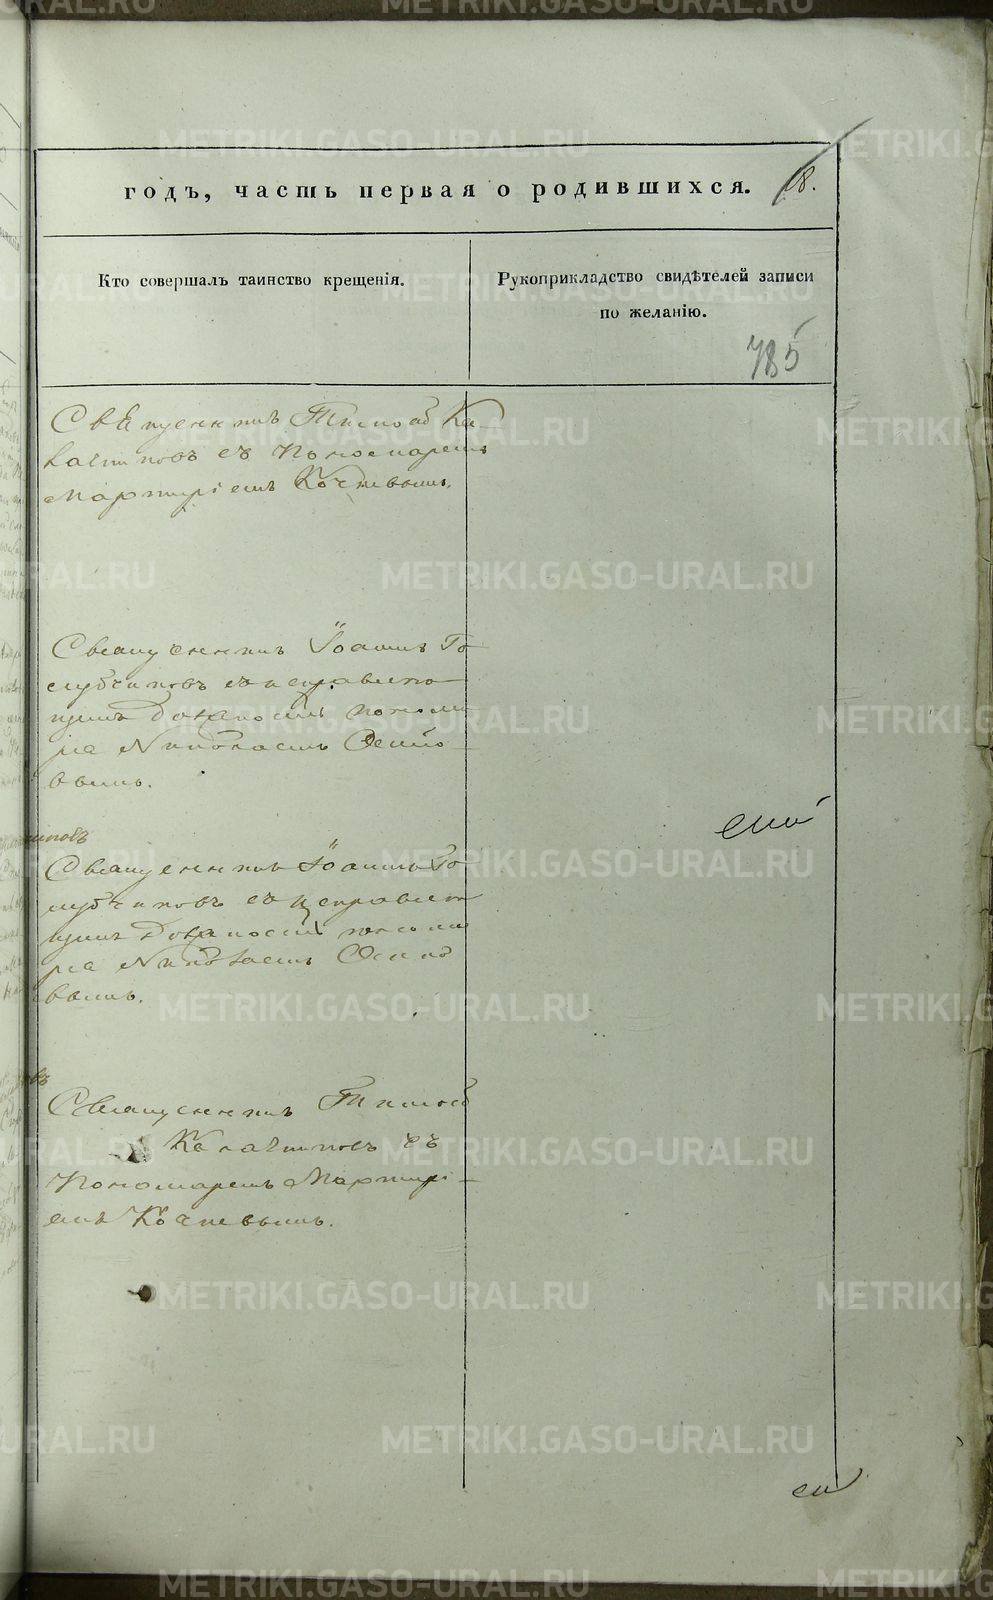 годъ, часть первая о родившихся.
18.
Кто совершалъ таинство крещенія.
Рукоприкладство свидѣтелей записи
по желанію.
785
Священникъ Тимоѳей Ка-
лачниковъ съ Пономаремъ
Мартиріемъ
Священникъ Іоаннъ Го-
лубчиковъ съ исправляю-
щимъ должность понома-
ря Николаемъ Осипо-
вымъ.
Священникъ Іоаннъ Го
лубчиковъ съ исправляю
щимъ должность понома
ря Николаемъ Осипо
вымъ.
Священникъ Тимоѳей
съ
Пономаремъ Мартирі-
емъ
METRIKI.GASO-URAL.RU